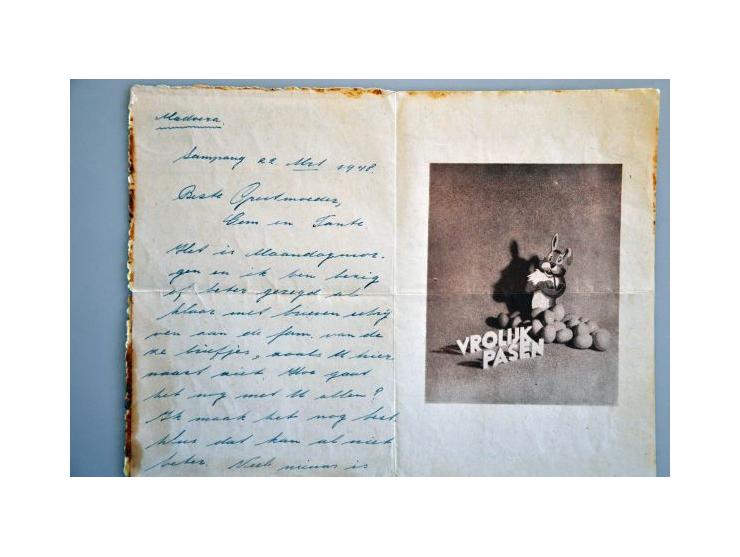 Madoera.
Sampang 22 Mrt 1948.
Beste Grootmoeder,
Oom en Tante.
Het is Maandagmor-
gen en ik ben bezig
of beter gezegd al
klaar met brieven schrij
ven aan de fam. van de
ze briefjes, zoals U hier
naast ziet Hoe gaat
het nog met U allen?
Ik maak het nog best
plus dat kan al niet
beter. Veel nieuws is
VROLIJK
PASEN